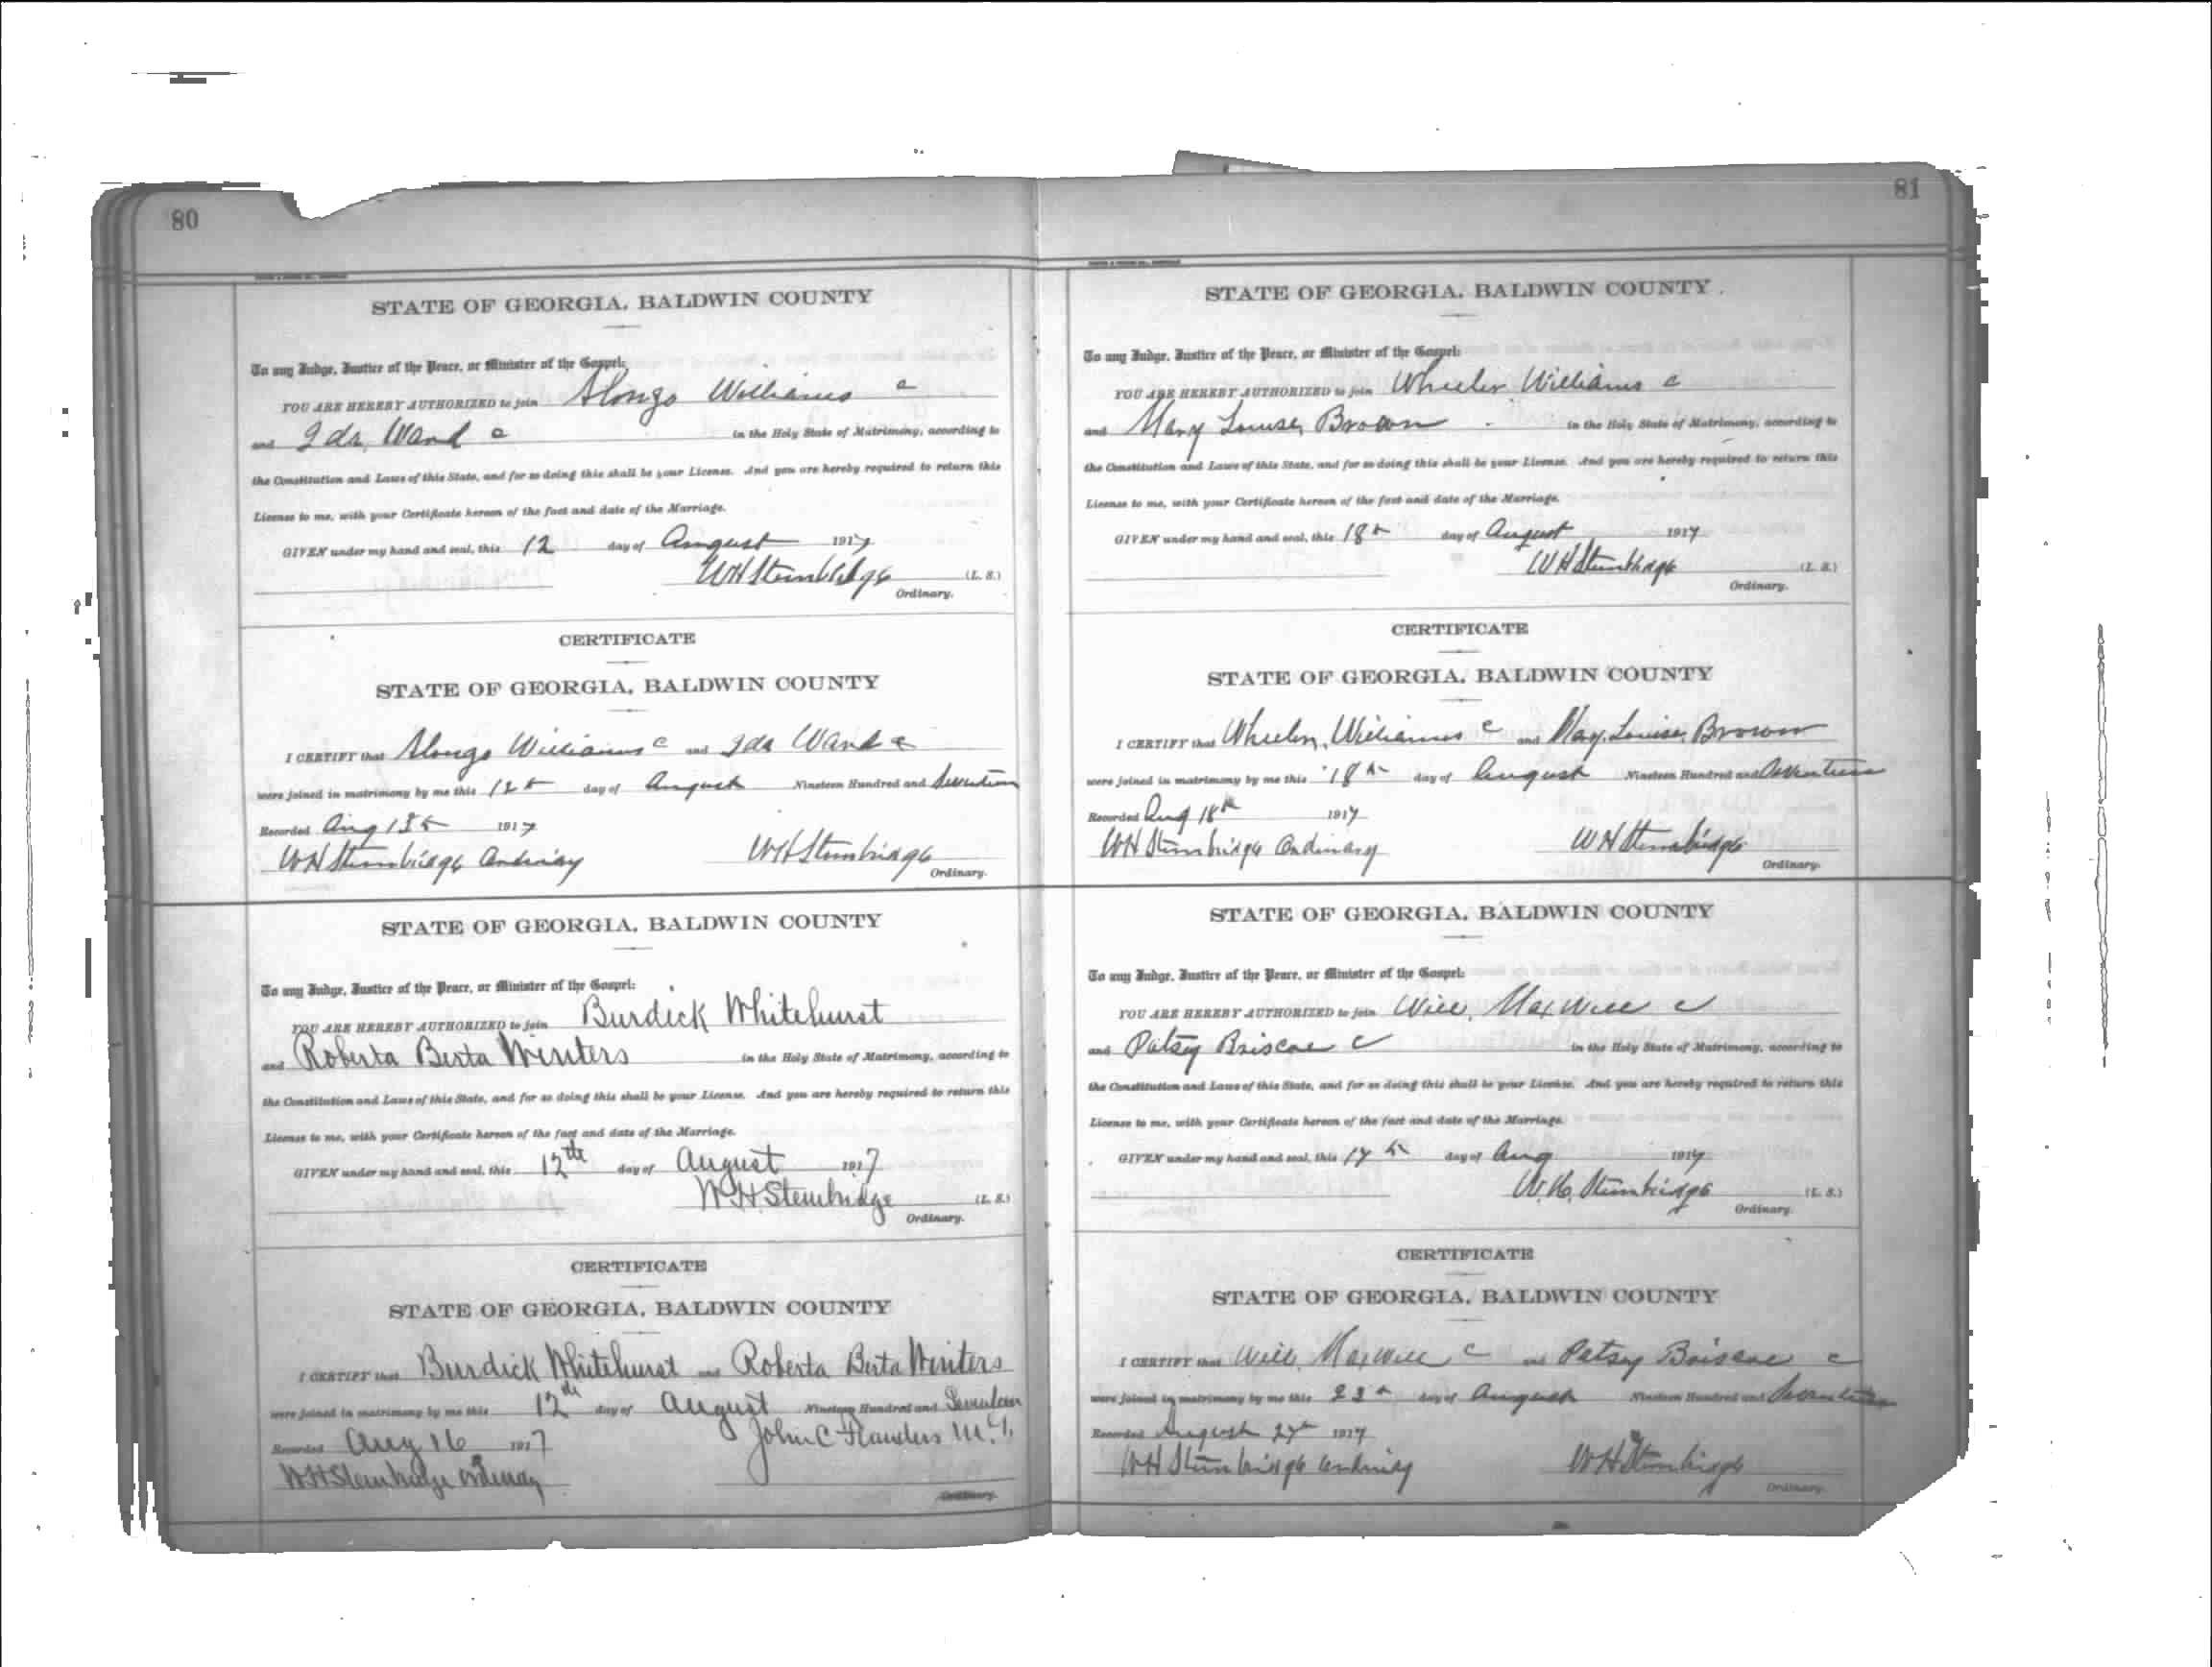 80
STATE OF GEORGIA, BALDWIN COUNTY
To any Judge, Justice of the Peace, or Minister of the Gospel:
YOU ARE HEREBY AUTHORIZED to join Alonzo Williams c
and Ida Ward c in the Holy State of Matrimony, according to
the Constitution and Laws of this State, and for so doing this shall be your License. And you are hereby required to return this
License to me, with your Certificate hereon of the fact and date of the Marriage.
GIVEN under my hand and seal, this 12 day of August 1917
WH Stembridge (L. S.)
Ordinary.
CERTIFICATE
STATE OF GEORGIA, BALDWIN COUNTY
I CERTIFY that Alonzo Williams c and Ida Ward c
were joined in matrimony by me this 12th day of August Nineteen Hundred and Seventeen
Recorded Aug 13th 1917
WH Stembridge Ordinary WH Stembridge
Ordinary.
STATE OF GEORGIA, BALDWIN COUNTY
To any Judge, Justice of the Peace, or Minister of the Gospel:
YOU ARE HEREBY AUTHORIZED to join Burdick Whitehurst
and Roberta Berta Winters in the Holy State of Matrimony, according to
the Constitution and Laws of this State, and for so doing this shall be your License. And you are hereby required to return this
License to me, with your Certificate hereon of the fact and date of the Marriage.
GIVEN under my hand and seal, this 12th day of August 1917
W.H. Stembridge (L. S.)
Ordinary.
CERTIFICATE
STATE OF GEORGIA, BALDWIN COUNTY
I CERTIFY that Burdick Whitehurst and Roberta Berta Winters
were joined in matrimony by me this 12th day of August Nineteen Hundred and Seventeen
Recorded Aug 16 1917 John C Flanders M.G.
WH Stembridge Ordinary
Ordinary.
81
STATE OF GEORGIA, BALDWIN COUNTY
To any Judge, Justice of the Peace, or Minister of the Gospel:
YOU ARE HEREBY AUTHORIZED to join Wheeler Williams c
and Mary Louise Brown in the Holy State of Matrimony, according to
the Constitution and Laws of this State, and for so doing this shall be your License. And you are hereby required to return this
License to me, with your Certificate hereon of the fact and date of the Marriage.
GIVEN under my hand and seal, this 18th day of August 1917
WH Stembridge (L. S.)
Ordinary.
CERTIFICATE
STATE OF GEORGIA, BALDWIN COUNTY
I CERTIFY that Wheeler Williams c and Mary Louise Brown
were joined in matrimony by me this 18th day of August Nineteen Hundred and Seventeen
Recorded Aug 18th 1917
WH Stembridge Ordinary WH Stembridge
Ordinary.
STATE OF GEORGIA, BALDWIN COUNTY
To any Judge, Justice of the Peace, or Minister of the Gospel:
YOU ARE HEREBY AUTHORIZED to join Will Maxwell c
and Patsy Briscoe c in the Holy State of Matrimony, according to
the Constitution and Laws of this State, and for so doing this shall be your License. And you are hereby required to return this
License to me, with your Certificate hereon of the fact and date of the Marriage.
GIVEN under my hand and seal, this 17th day of Aug 1917
W.H. Stembridge (L. S.)
Ordinary.
CERTIFICATE
STATE OF GEORGIA, BALDWIN COUNTY
I CERTIFY that Will Maxwell c and Patsy Briscoe c
were joined in matrimony by me this 23th day of August Nineteen Hundred and Seventeen
Recorded August 27th 1917
WH Stembridge Ordinary WH Stembridge
Ordinary.